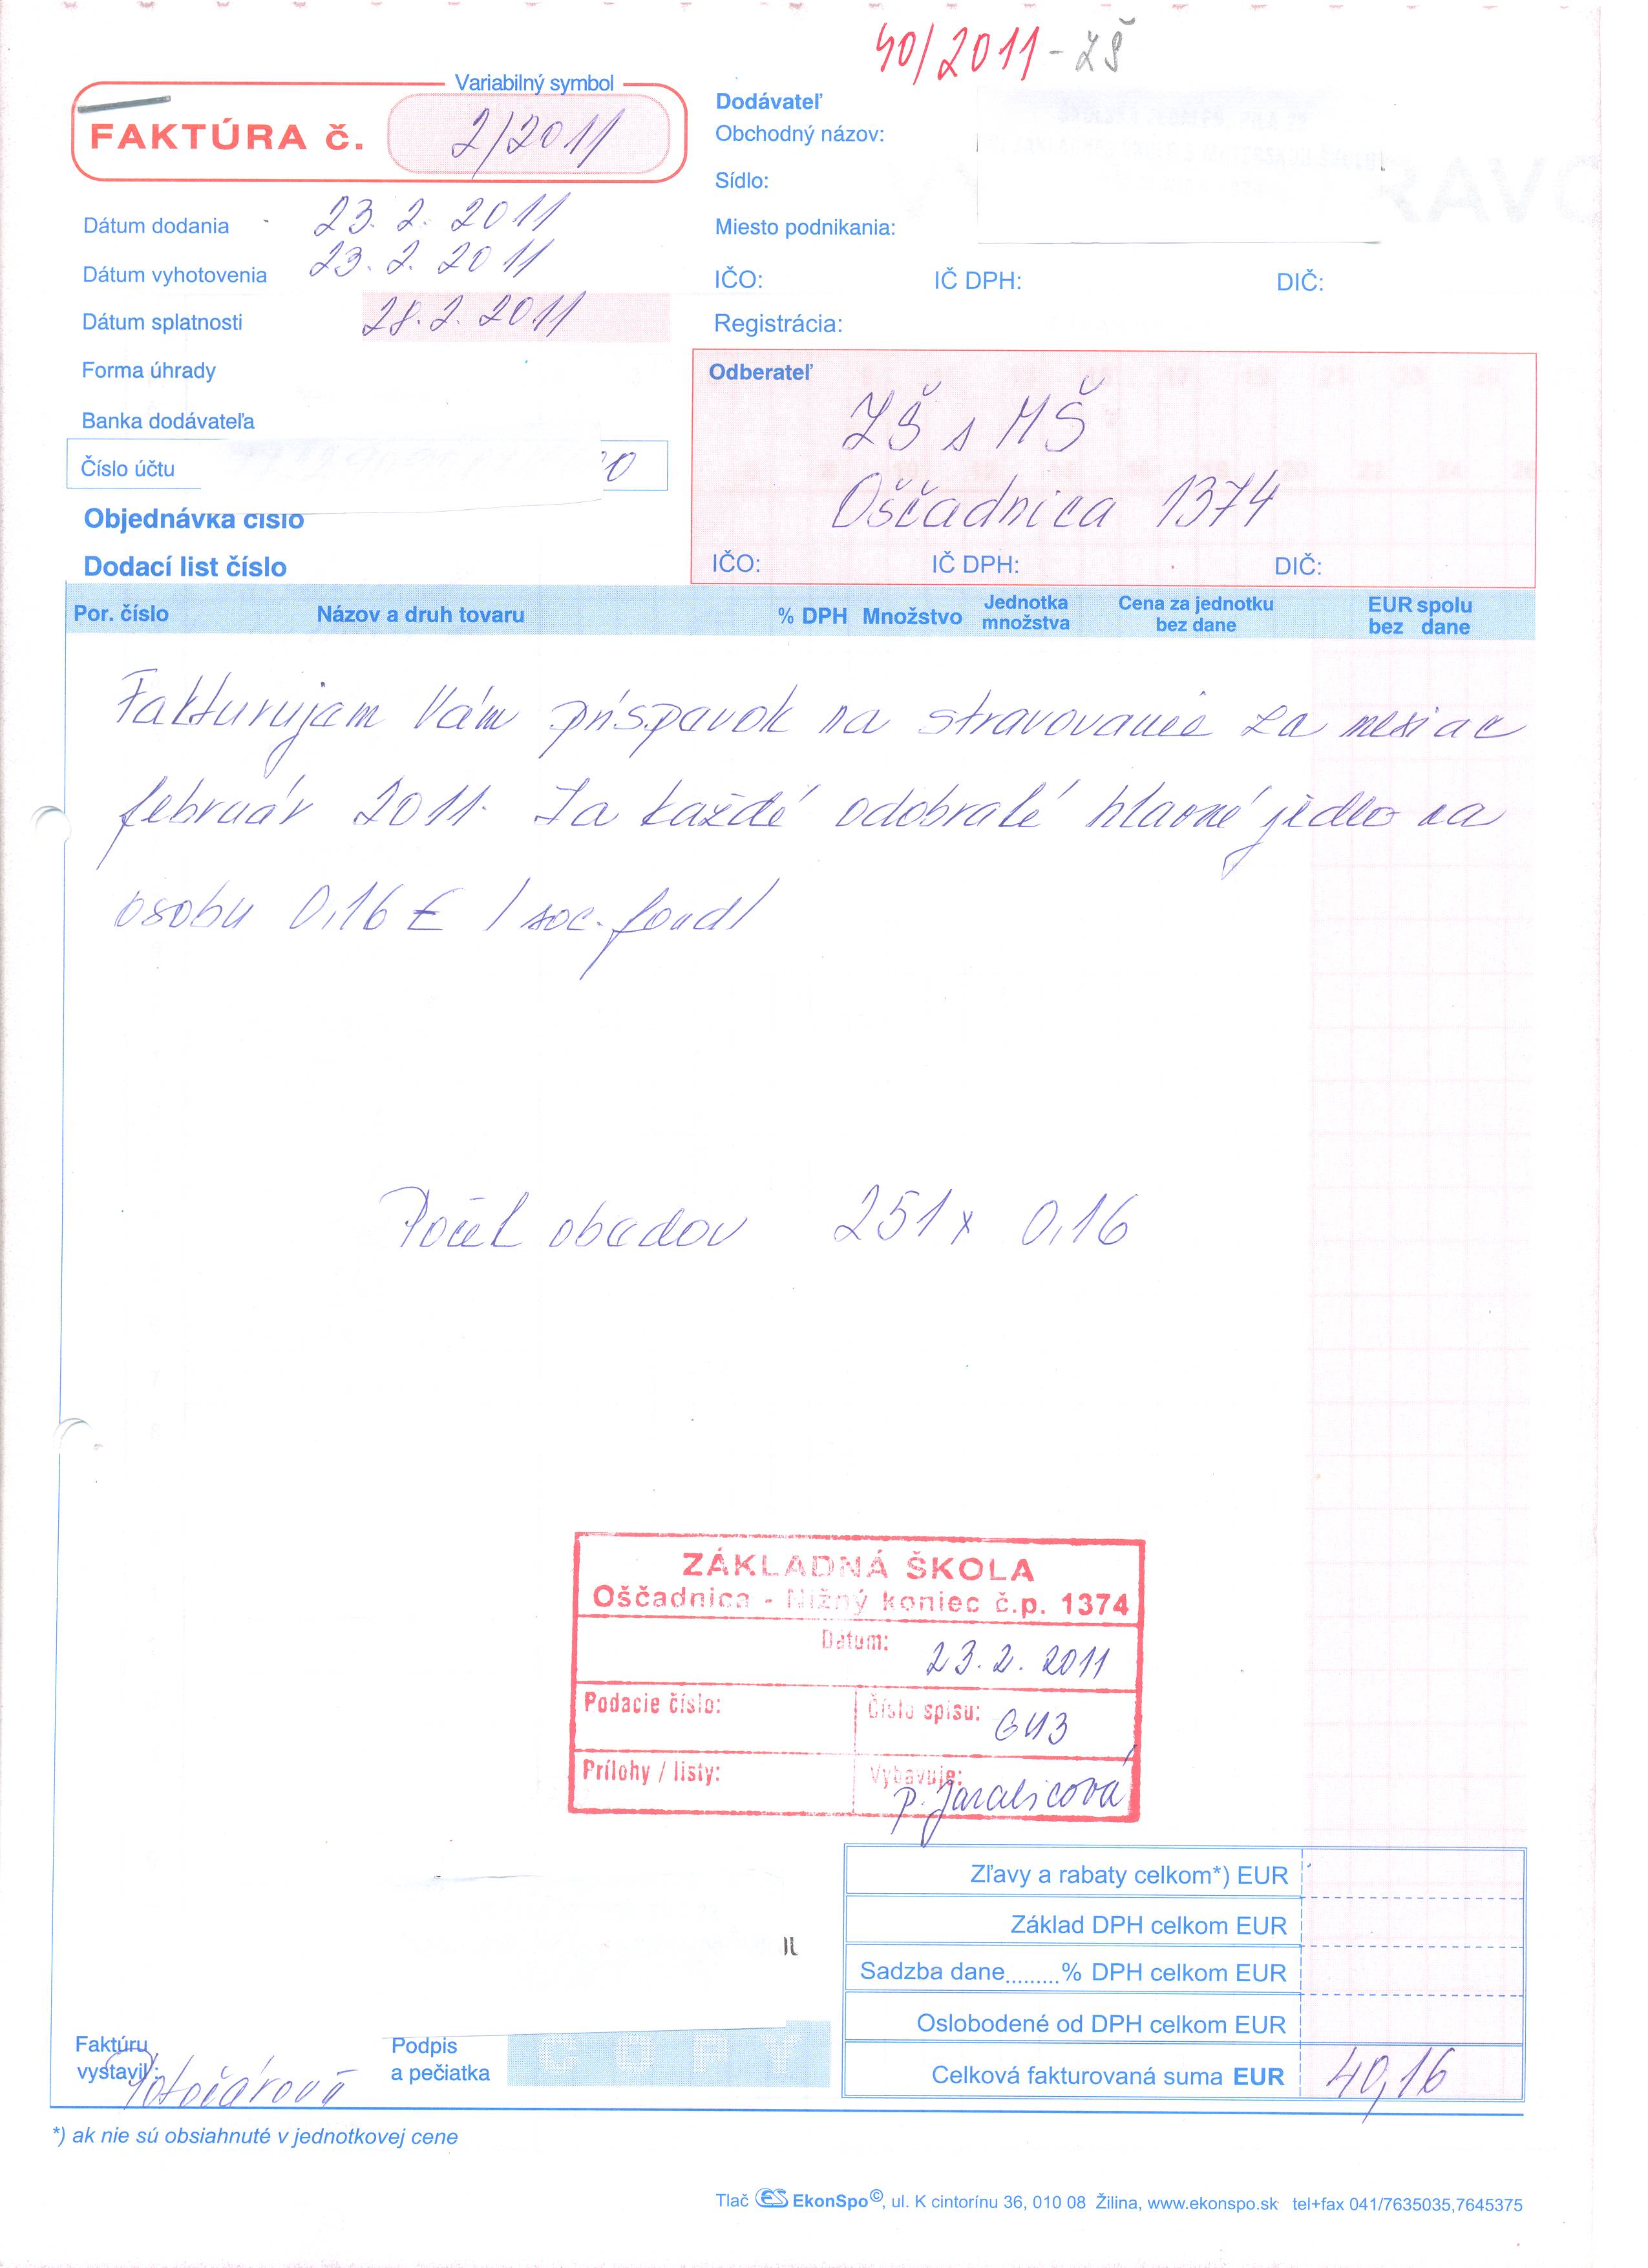 40/2011-ZŠ
Variabilný symbol
FAKTÚRA č. 2/2011
Dátum dodania 23. 2. 2011
Dátum vyhotovenia 23. 2. 2011
Dátum splatnosti 28. 2. 2011
Forma úhrady
Banka dodávateľa
Číslo účtu 0
Objednávka číslo
Dodací list číslo
Dodávateľ
Obchodný názov:
Sídlo:
Miesto podnikania:
IČO: IČ DPH: DIČ:
Registrácia:
Odberateľ
ZŠ s MŠ
Oščadnica 1374
IČO: IČ DPH: DIČ:
Por. číslo Názov a druh tovaru % DPH Množstvo Jednotka množstva Cena za jednotku bez dane EUR spolu bez dane
Fakturujem Vám príspevok na stravovanie za mesiac
február 2011. Za každé odobraté hlavné jedlo na
osobu 0,16 € / soc. fond/
Počet obedov 251 x 0,16
ZÁKLADNÁ ŠKOLA
Oščadnica - Nižný koniec č.p. 1374
Dátum: 23. 2. 2011
Podacie číslo: Číslo spisu: 643
Prílohy / listy: Vybavuje: p.
Zľavy a rabaty celkom*) EUR
Základ DPH celkom EUR
Sadzba dane.........% DPH celkom EUR
Oslobodené od DPH celkom EUR
Celková fakturovaná suma EUR 40,16
Faktúru
vystavil:
Podpis
a pečiatka
COPY
*) ak nie sú obsiahnuté v jednotkovej cene
Tlač ES EkonSpo©, ul. K cintorínu 36, 010 08 Žilina, www.ekonspo.sk tel+fax 041/7635035,7645375